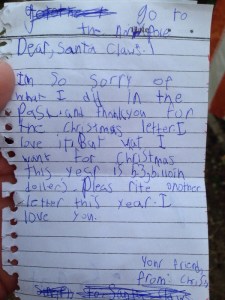 go to
the
Dear, Santa Claws.
I'm so sorry of
what I did in the
Past. and thankyou For
the christmas letter. I
love it. But wat I
want For christmas
this year is
dollers. Pleas rite another
letter this year. I
love you.
Your friend,
From: Chris